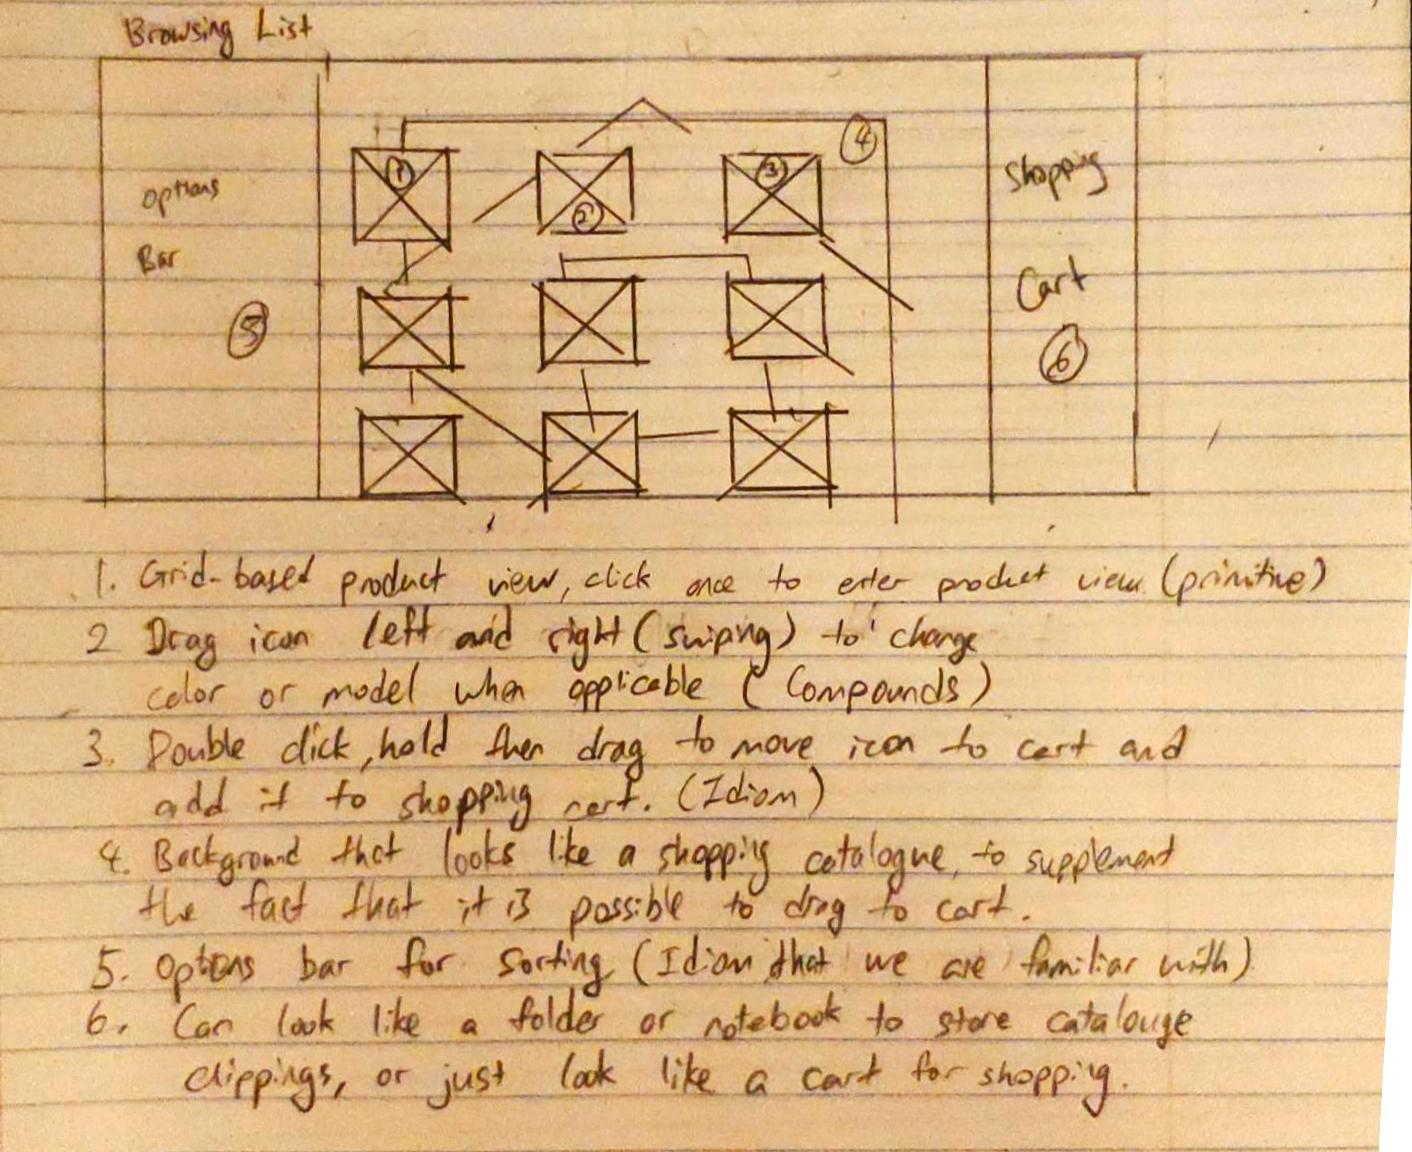 Browsing List
options
Bar
5
1
2
3
4
Shopping
Cart
6
1. Grid-based product view, click once to enter product view (primitive)
2 Drag icon left and right (swiping) to change
color or model when applicable (Compounds)
3. Double click, hold then drag to move icon to cart and
add it to shopping cart. (Idiom)
4. Background that looks like a shopping catalogue, to supplement
the fact that it is possible to drag to cart.
5. Options bar for sorting (Idiom that we are familiar with)
6. Can look like a folder or notebook to store catalouge
clippings, or just look like a cart for shopping.